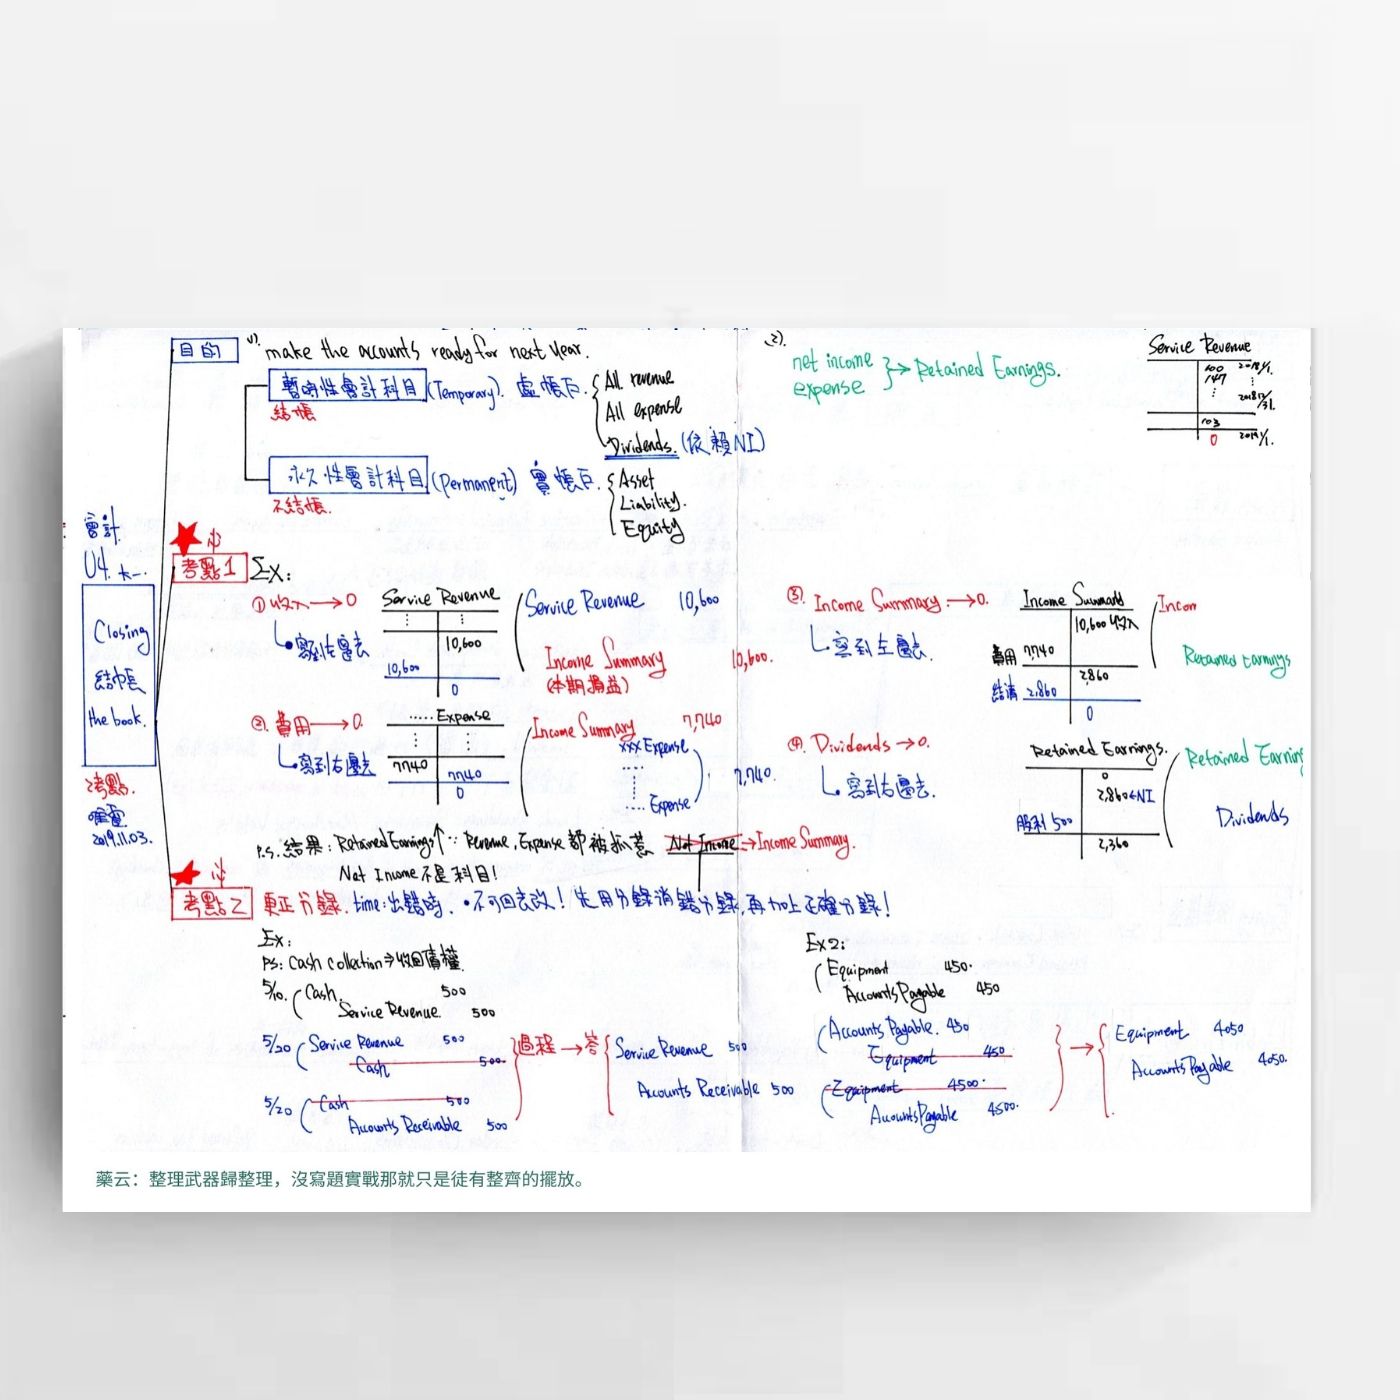 目的
1). make the accounts ready for next year.
暫時性會計科目 (Temporary). 虛帳戶.
結帳
All revenue
All expense
Dividends. (依賴NI)
永久性會計科目 (permanent) 實帳戶.
不結帳.
Asset
Liability.
Equity
2).
net income
expense
→ Retained Earnings.
Service Revenue
100 2018 1/1.
147
2018 12/31.
103
0 2019 1/1.
會計
U4. 大一.
Closing
結帳
the book.
2考點.
2019.11.03.
必
考點1
Ex:
① 收入 → 0
寫到左邊去
Service Revenue
10,600
10,600
0
Service Revenue 10,600
Income Summary 10,600.
(本期損益)
② 費用 → 0.
寫到右邊去
..... Expense
7740
7740
0
Income Summary 7,740
xxx Expense
Expense
7,740.
③. Income Summary. → 0.
寫到左邊去.
Income Summary
10,600 收入
費用 7,740
2,860
結清 2,860
0
Incom
Retained Earnings
④. Dividends → 0.
寫到右邊去.
Retained Earnings.
0
2,860 ← NI
股利 500
2,360
Retained Earning
Dividends
P.S. 結果: Retained Earnings↑ ∵ Revenue, Expense 都被抓差 Net Income → Income Summary.
Net Income 不是科目!
必
考點2
更正分錄. time: 出錯時. • 不可回去改! 先用分錄消錯分錄, 再加上正確分錄!
Ex:
PS: Cash collection ⇒ 收回債權.
5/10. Cash. 500
Service Revenue. 500
5/20 Service Revenue 500
Cash 500
5/20 Cash 500
Accounts Receivable 500
過程 → 答
Service Revenue 500
Accounts Receivable 500
Ex2:
Equipment 450.
Accounts Payable 450
Accounts Payable. 450
Equipment 450
Equipment 4500.
Accounts Payable 4500.
→
Equipment 4050
Accounts Payable 4050.
藥云：整理武器歸整理，沒寫題實戰那就只是徒有整齊的擺放。